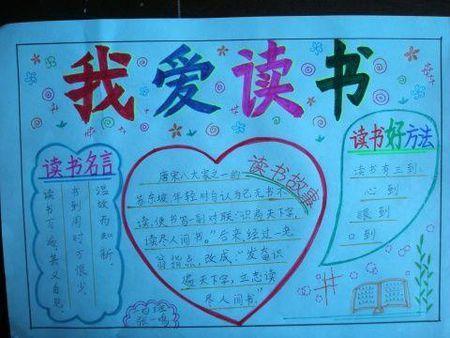 我爱读书
读书名言
温故而知新。
书到用时方恨少。
读书百遍,其义自见。
读书故事
唐宋八大家之一的
苏东坡年轻时自认为已无书不
读,便书写一副对联"识遍天下字,
读尽人间书。"后来,经过一老
翁指点,改成:"发奋识
遍天下字,立志读
尽人间书。"
读书好方法
读书有三到:
心到
眼到
口到
张一鸣